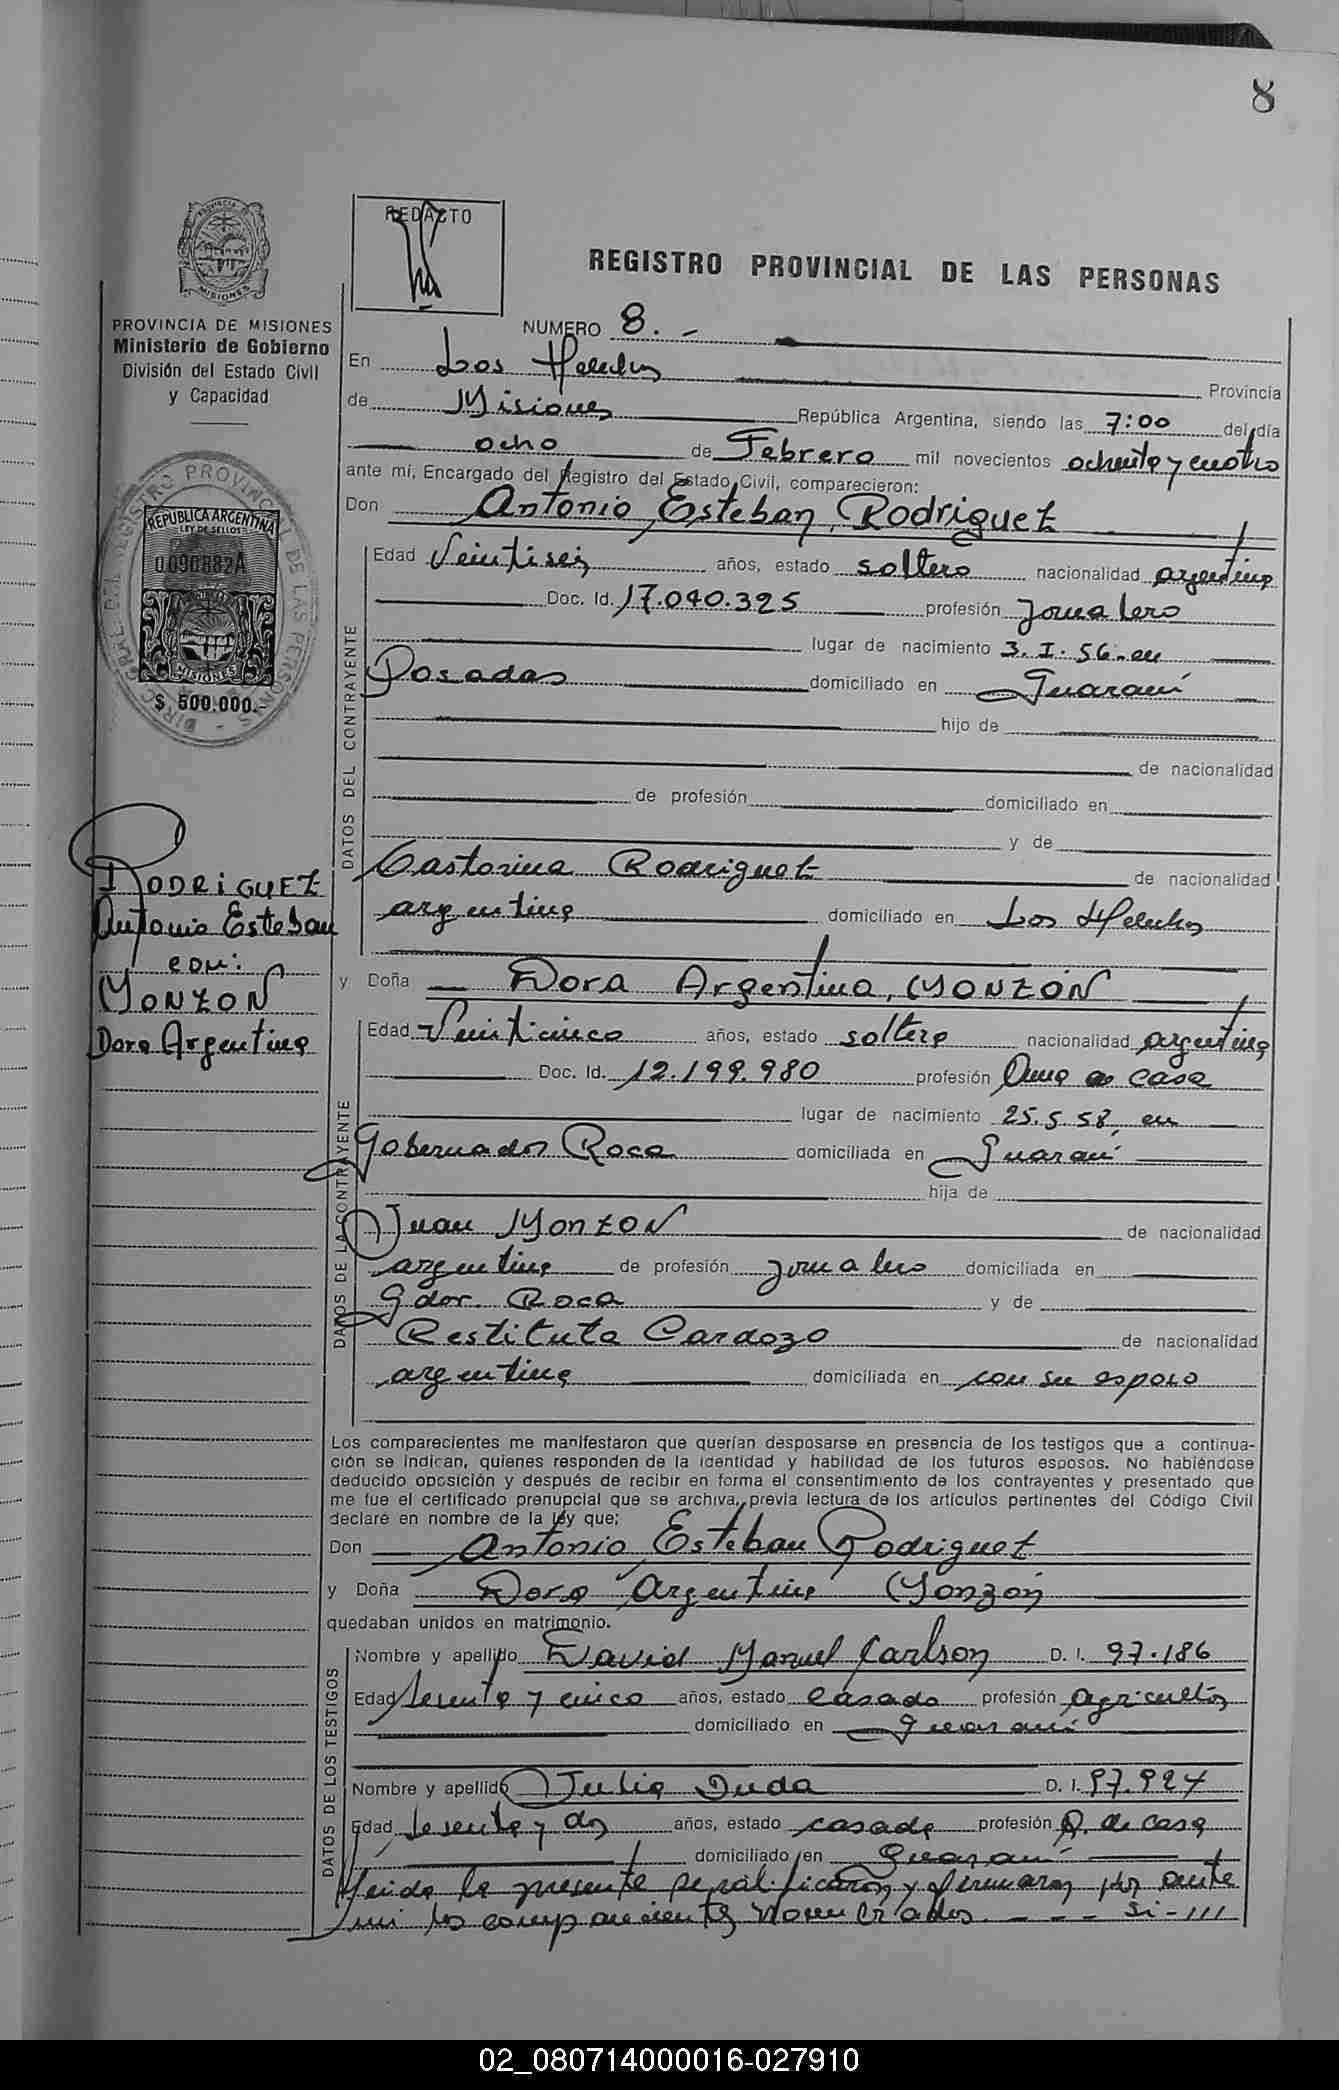 8
PROVINCIA DE
MISIONES
REDACTO
REGISTRO PROVINCIAL DE LAS PERSONAS
PROVINCIA DE MISIONES
Ministerio de Gobierno
División del Estado Civil
y Capacidad
NUMERO 8.-
En Los Helechos Provincia
de Misiones República Argentina, siendo las 7:00 del día
ocho de Febrero mil novecientos ochenta y cuatro
ante mí, Encargado del Registro del Estado Civil, comparecieron:
Don Antonio Esteban Rodriguez
REPUBLICA ARGENTINA
LEY DE SELLOS
0.090882A
MISIONES
$ 500.000.-
Edad Veintiseis años, estado soltero nacionalidad argentina
Doc. Id. 17.040.325 profesión Jornalero
lugar de nacimiento 3.I.56.en
Posadas domiciliado en Guaraní
hijo de
de nacionalidad
de profesión domiciliado en
y de
Castorina Rodriguez de nacionalidad
argentina domiciliado en Los Helechos
DATOS DEL CONTRAYENTE
RODRIGUEZ
Antonio Esteban
con:
MONZON
Dora Argentina
y Doña Dora Argentina, MONZÓN
Edad Veinticinco años, estado soltera nacionalidad argentina
Doc. Id. 12.199.980 profesión Ama de casa
lugar de nacimiento 25.5.58, en
Gobernador Roca domiciliada en Guaraní
hija de
Juan MONZON de nacionalidad
argentina de profesión jornalero domiciliada en
Gdor. Roca y de
Restituta Cardozo de nacionalidad
argentina domiciliada en con su esposo
DATOS DE LA CONTRAYENTE
Los comparecientes me manifestaron que querían desposarse en presencia de los testigos que a continua-
ción se indican, quienes responden de la identidad y habilidad de los futuros esposos. No habiéndose
deducido oposición y después de recibir en forma el consentimiento de los contrayentes y presentado que
me fue el certificado prenupcial que se archiva, previa lectura de los artículos pertinentes del Código Civil
declaré en nombre de la ley que:
Don Antonio Esteban Rodriguez
y Doña Dora Argentina Monzón
quedaban unidos en matrimonio.
Nombre y apellido David Manuel Carlson D. I. 97.186
Edad sesenta y cinco años, estado casado profesión agricultor
domiciliado en Guaraní
Nombre y apellido Julia Duda D. I. 97.924
Edad sesenta y dos años, estado casada profesión A. de casa
domiciliado en Guaraní
DATOS DE LOS TESTIGOS
leida la presente se ratificaron y firmaron por ante
mi los comparecientes nombrados - - - si-///
02_080714000016-027910